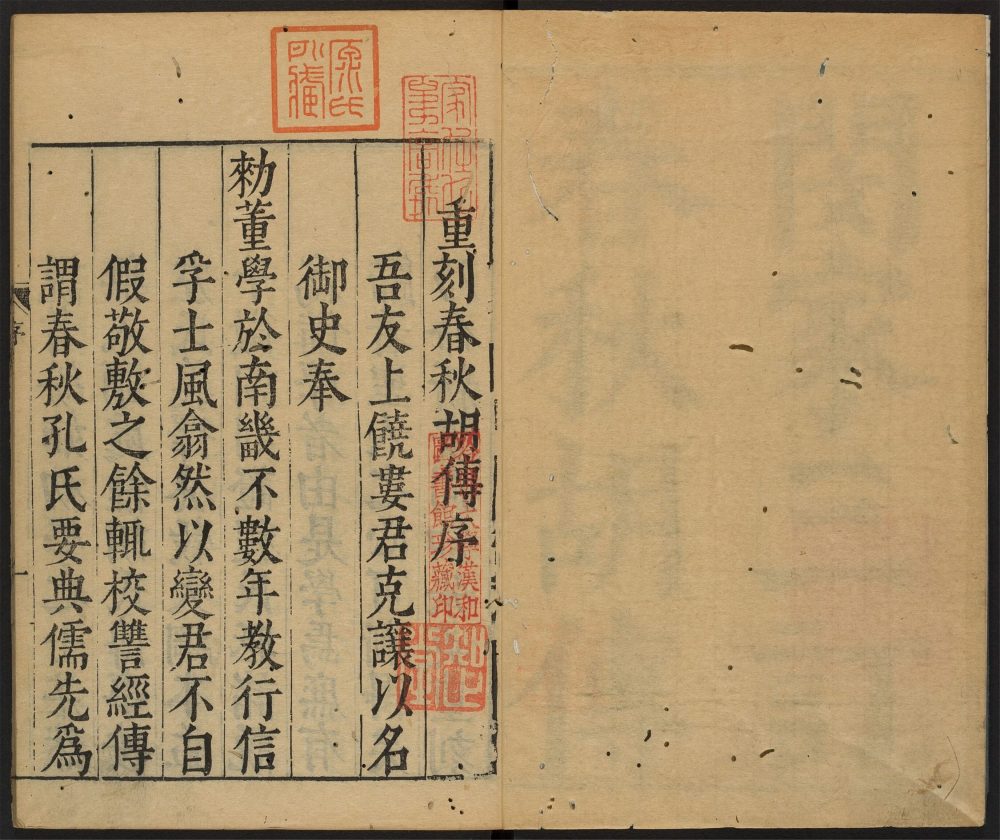 重刻春秋胡傳序
吾友上饒婁君克讓以名
御史奉
勑董學於南畿不數年教行信
孚士風翕然以變君不自
假敬敷之餘輒校讐經傳
謂春秋孔氏要典儒先爲
序
一
漢和
圖書館
藏印